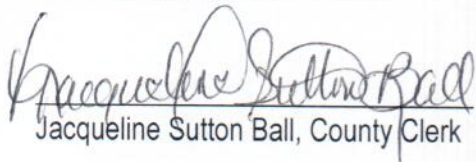 Jacqueline Sutton Ball
Jacqueline Sutton Ball, County Clerk